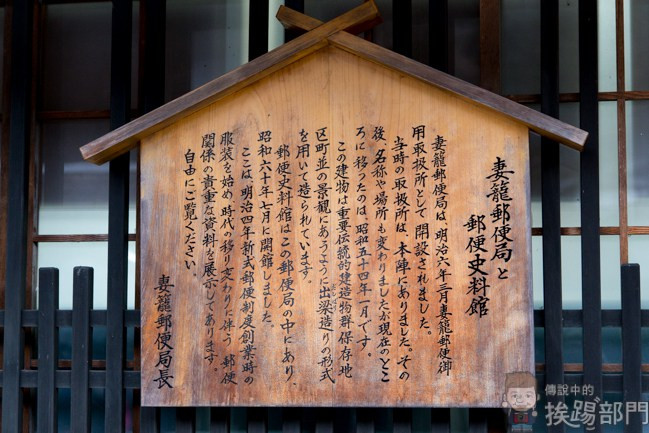 妻籠郵便局と
郵便史料館
妻籠郵便局は、明治六年三月妻籠郵便御
用取扱所として開設されました。
当時の取扱所は、本陣にありました。その
後、名称や場所も変わりましたが現在のとこ
ろに移ったのは、昭和五十四年一月です。
この建物は重要伝統的建造物群保存地
区町並の景観にあうように出梁造りの形式
を用いて造られています。
郵便史料館はこの郵便局の中にあり、
昭和六十年七月に開館しました。
ここは、明治四年新式郵便制度創業時の
服装を始め、時代の移り変わりに伴う、郵便
関係の貴重な資料を展示してあります。
自由にご覧ください。
妻籠郵便局長
傳說中的
挨踢部門